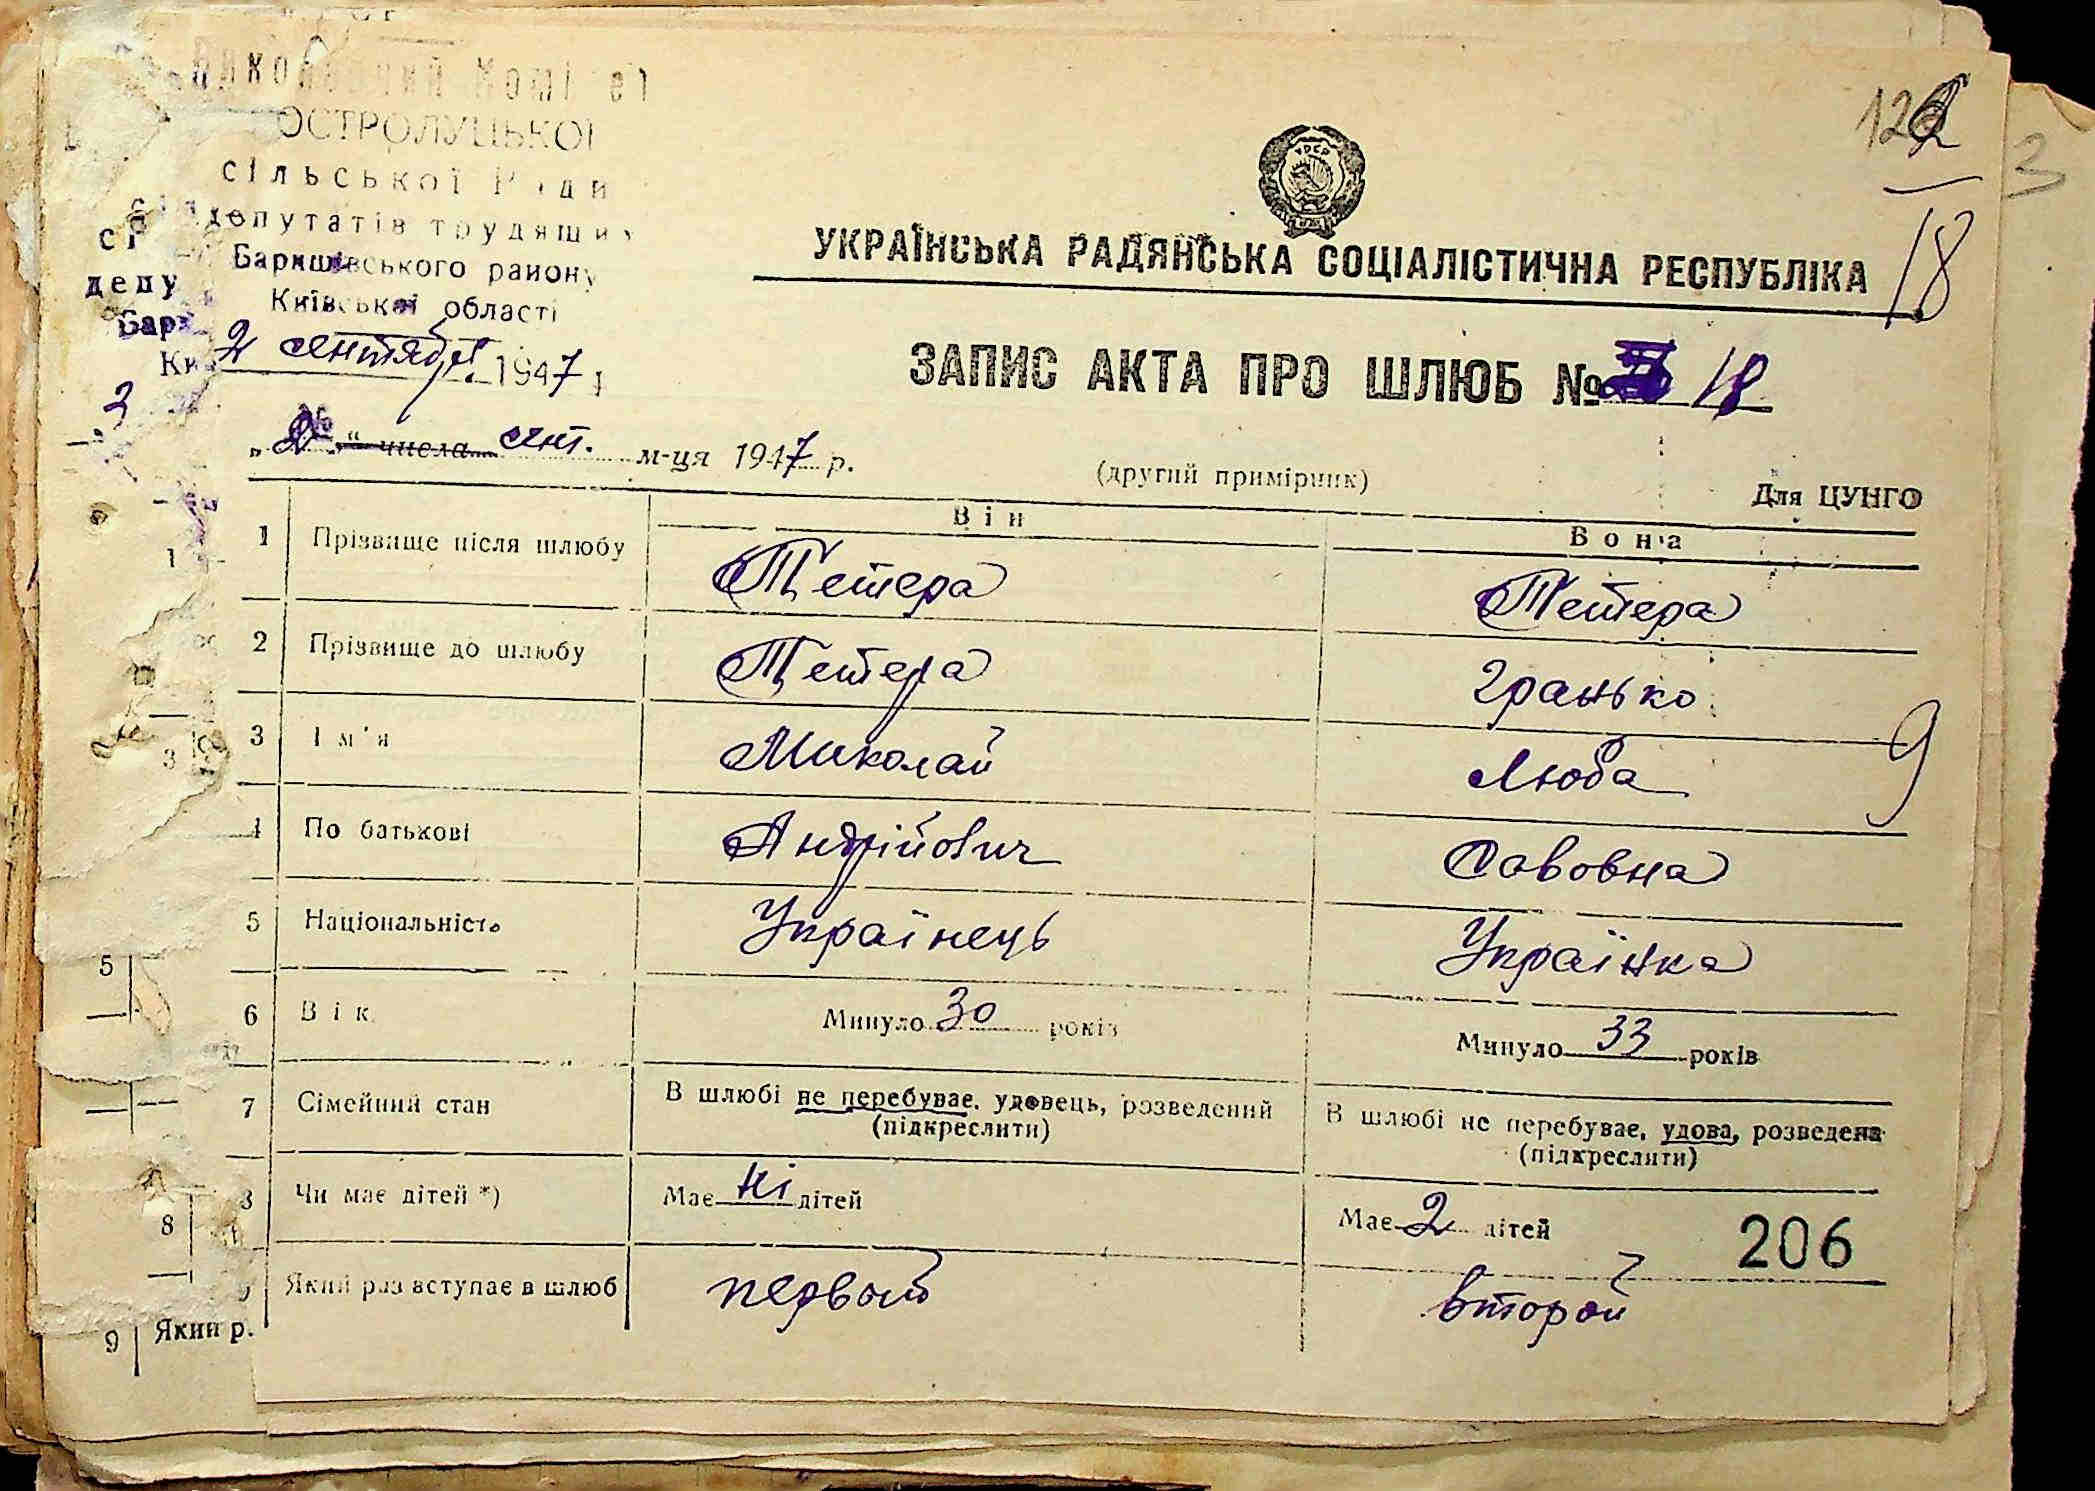 Виконавчий Комітет
ОСТРОЛУЦЬКОЇ
сільської Ради
депутатів трудящих
Баришівського району
Київської області
2 сентября 1947 р
122
18
3
УРСР
УКРАЇНСЬКА РАДЯНСЬКА СОЦІАЛІСТИЧНА РЕСПУБЛІКА
ЗАПИС АКТА ПРО ШЛЮБ № 18
„ 2 " числа сент. м-ця 1947 р.
(другий примірник)
Для ЦУНГО
Він
Вона
1 Прізвище після шлюбу Тетера Тетера
2 Прізвище до шлюбу Тетера Гранько
3 Ім'я Миколай Люба 9
4 По батькові Андрійович Савовна
5 Національність Українець Українка
6 Вік Минуло 30 років Минуло 33 років
7 Сімейний стан В шлюбі не перебуває, удовець, розведений В шлюбі не перебуває, удова, розведена
(підкреслити) (підкреслити)
8 Чи має дітей *) Має ні дітей Має 2 дітей
206
Який раз вступає в шлюб первый второй
сі
депу
Бари
Ки
3
1
3
5
8
9 Який р.